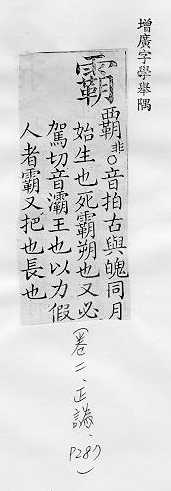 增廣字學舉隅
霸
覇非○音拍古與魄同月
始生也死霸朔也又必
駕切音灞王也以力假
人者霸又把也長也
(卷二、正譌、P287)